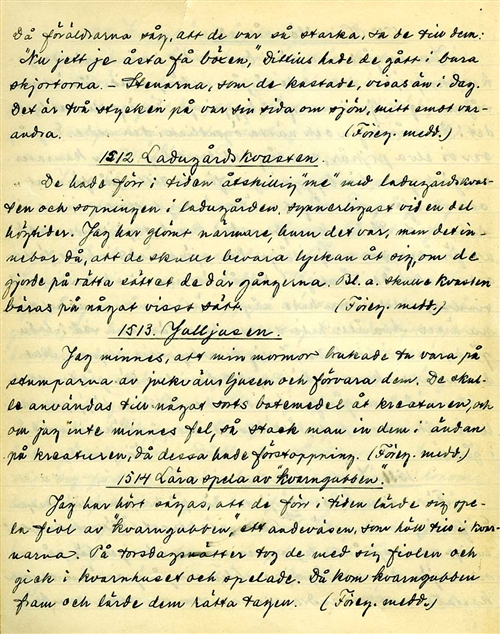 Då föräldrarna såg, att de var så starka, sa de till dem:
"Nu jett je åsta få böxen," Dittills hade de gått i bara
skjortorna. – Stenarna, som de kastade, visas än i dag.
Det är två stycken på var sin sida om sjön, mitt emot var-
andra. (Föreg. medd.)
1512 Ladugårdskvasten.
"De hade förr i tiden åtskillig "me" med ladugårdskvas-
ten och sopningen i ladugården, synnerligast vid en del
högtider. Jag har glömt närmare, huru det var, men det in-
nebar då, att de skulle bevara lyckan åt sig, om de
gjorde på rätta sättet de där gångerna. Bl. a. skulle kvasten
bäras på något visst sätt. (Föreg. medd.)
1513 Julljusen.
Jag minnes, att min mormor brukade ta vara på
stumparna av julkvällsljusen och förvara dem. De skul-
le användas till något sorts botemedel åt kreaturen, och
om jag inte minnes fel, så stack man in dem i ändan
på kreaturen, då dessa hade förstoppning. (Föreg. medd.)
1514 Lära spela av "kvarngubben".
Jag har hört sägas, att de förr i tiden lärde sig spe-
la fiol av "kvarngubben", ett andeväsen, som höll till i kvar-
narna. På torsdagsnätter tog de med sig fiolen och
gick i kvarnhuset och spelade. Då kom kvarngubben
fram och lärde dem rätta tagen. (Föreg. medd.)